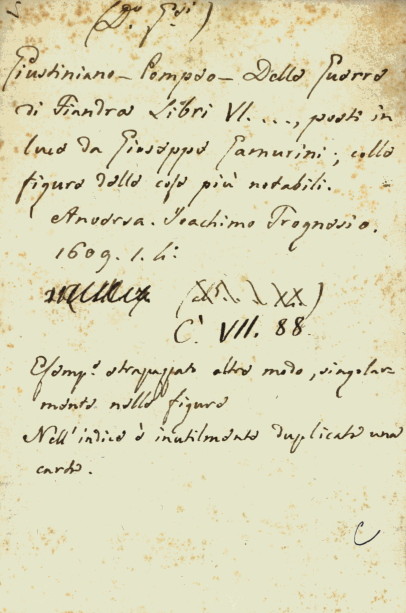 (D.º G.si)
Giustiniano – Pompeo – Delle Guerre
di Fiandra Libri VI. ..., posti in
luce da Gioseppe Gamurini; colle
figure delle cose più notabili.
Anversa. Joachimo Trognesio.
1609. 1. li:
(XI. XI.)
C. VII. 88
Esemp.e strapazzato oltre modo, singolar-
mente nelle figure
Nell'indice è inutilmente duplicata una
carta.
C